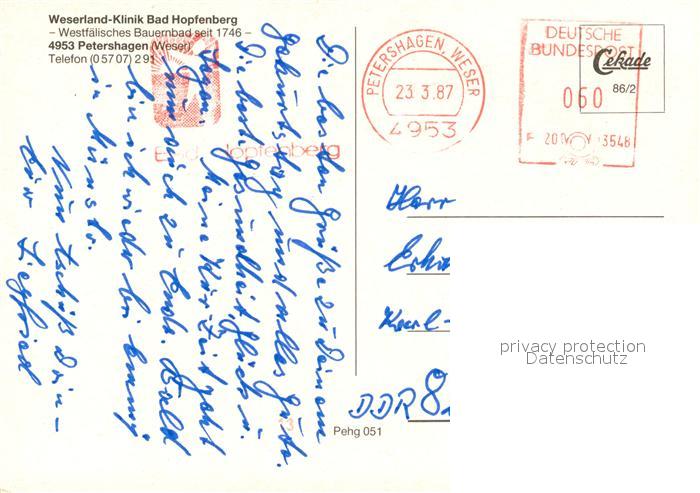 Weserland-Klinik Bad Hopfenberg
– Westfälisches Bauernbad seit 1746 –
4953 Petershagen (Weser)
Telefon (0 57 07) 2 91
Bad Hopfenberg
PETERSHAGEN, WESER
23.3.87
4953
DEUTSCHE
BUNDESPOST
060
F 20 3548
Cekade
86/2
Die besten Grüße zu Deinem
Geburtstag und alles Gute.
Die beste Gesundheit, Glück u.
Segen. Meine Kurzeit geht
nun auch zu Ende. Bald
bin ich wieder bei
in Münster.
Nun tschüß Dein
Siegfried
Herr
Karl-
DDR 8
Pehg 051
privacy protection
Datenschutz